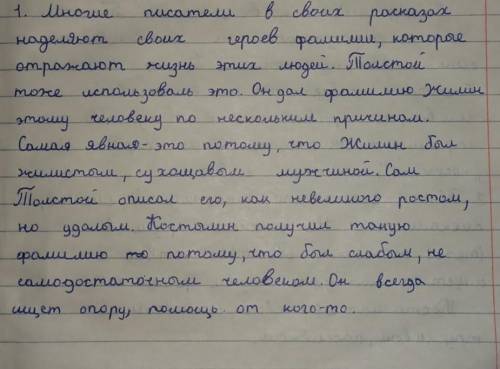 1. Многие писатели в своих расказах
наделяют своих героев фамилии, которые
отражают жизнь этих людей. Толстой
тоже использоваль это. Он дал фамилию Жилин
этому человеку по нескольким причинам.
Самая явная - это потому, что Жилин был
жилистым, сухощавым мужчиной. Сам
Толстой описал его, как невеликого ростом,
но удалым. Костылин получил такую
фамилию то потому, что был слабым, не
самодостаточным человеком. Он всегда
ищет опору, помощь от кого-то.